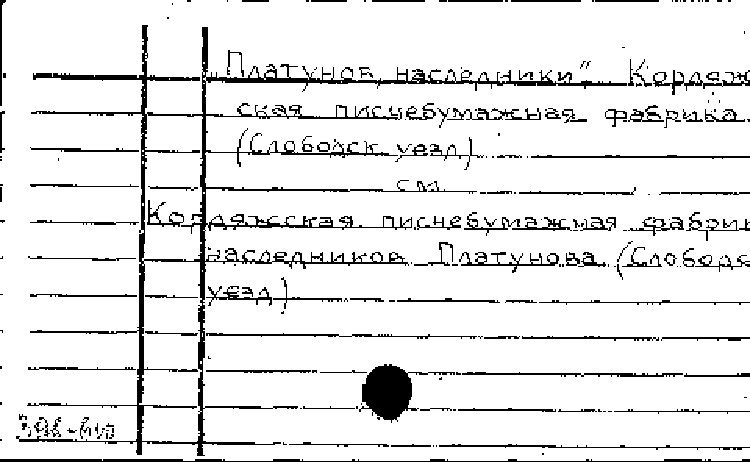 Платунов, наследники". Кордяж
ская писчебумажная фабрика.
(Слободск. уезд)
см.
Кордяжсская писчебумажная фабрик
наследников Платунова (Слободс
уезд)